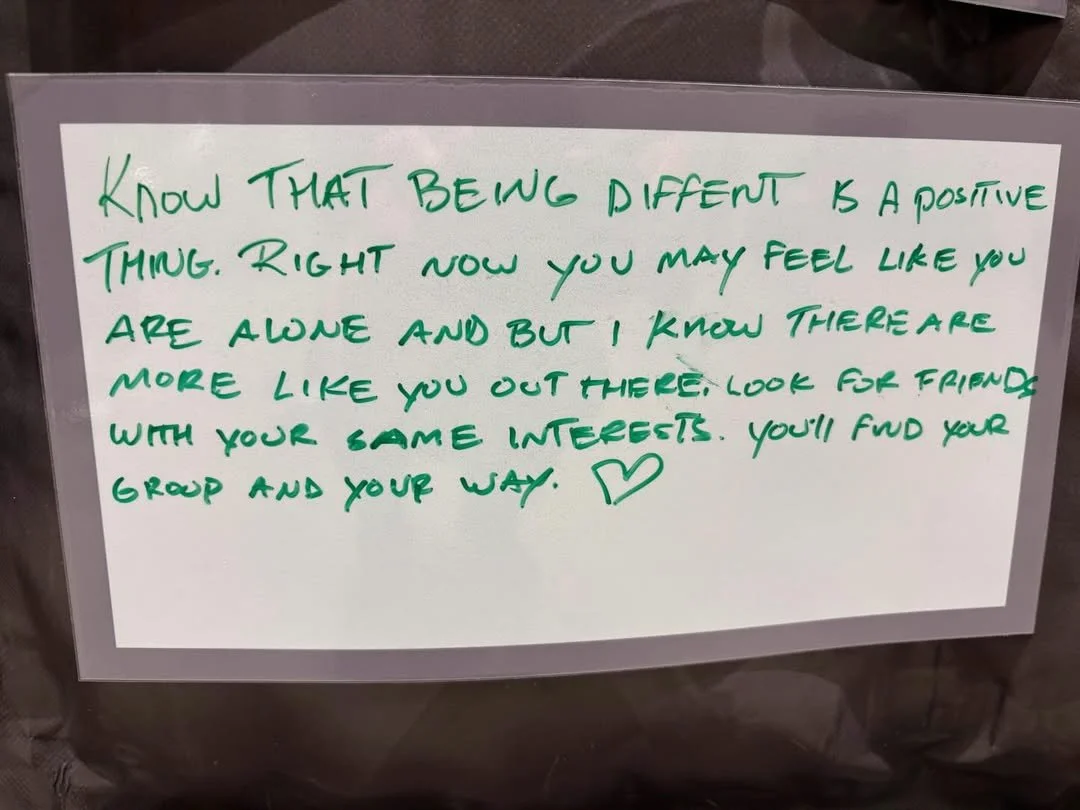 KNOW THAT BEING DIFFENT IS A POSITIVE
THING. RIGHT NOW YOU MAY FEEL LIKE YOU
ARE ALONE AND BUT I KNOW THERE ARE
MORE LIKE YOU OUT THERE. LOOK FOR FRIENDS
WITH YOUR SAME INTERESTS. YOU'll FIND YOUR
GROUP AND YOUR WAY. ♡